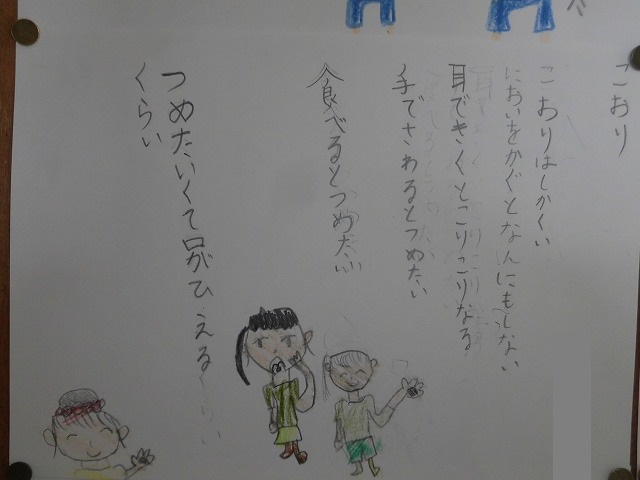 こおり
こおりはしかくい
においをかぐとなんにもしない
耳できくとこりこりなる
手でさわるとつめたい
食べるとつめたい
つめたいくて口がひえる
くらい